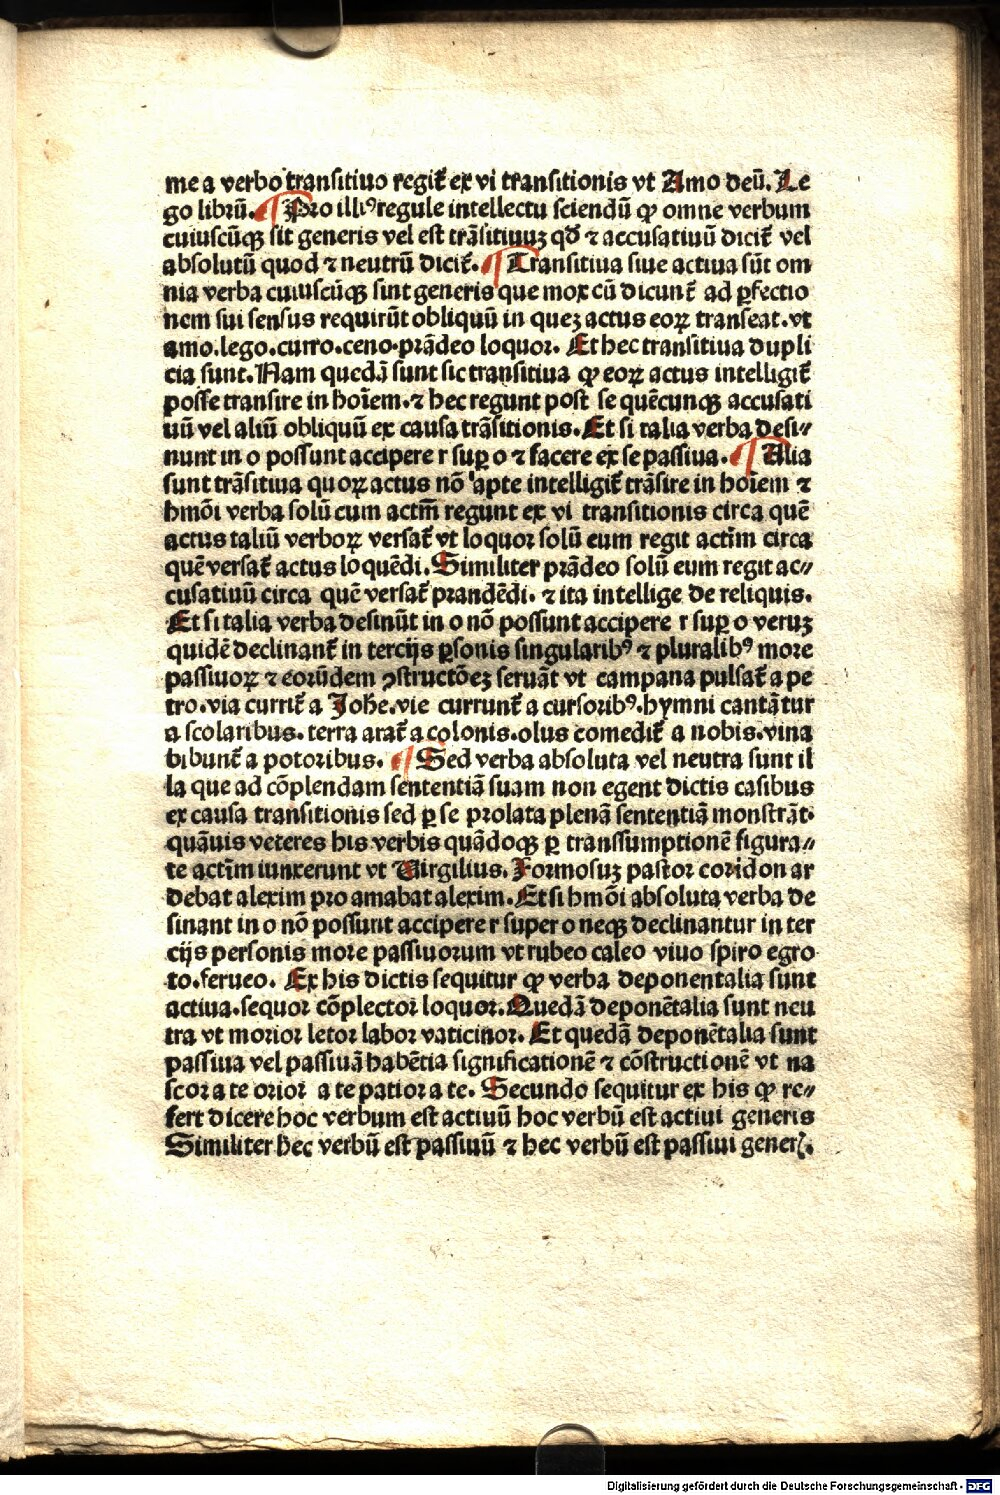 me a verbo transitiuo regit᷑ ex vi transitionis vt Amo deū. Le
go librū. ¶ Pro illiꝰ regule intellectu sciendū ꝙ omne verbum
cuiuscūqꝫ sit generis vel est trāsitiuuꝫ qd̄ ⁊ accusatiuū dicit᷑ vel
absolutū quod ⁊ neutrū dicit᷑. ¶ Transitiua siue actiua sūt om
nia verba cuiuscūqꝫ sint generis que mox cū dicunt᷑ ad ꝑfectio
nem sui sensus requirūt obliquū in queꝫ actus eoꝝ transeat. vt
amo. lego. curro. ceno. prādeo loquor. Et hec transitiua dupli
cia sunt. Nam quedā sunt sic transitiua ꝙ eoꝝ actus intelligit᷑
posse transire in hoīem. ⁊ hec regunt post se quēcunqꝫ accusati
uū vel aliū obliquū ex causa trāsitionis. Et si talia verba desi⸗
nunt in o possunt accipere r suꝑ o ⁊ facere ex se passiua. ¶ Alia
sunt trāsitiua quoꝝ actus nō apte intelligit᷑ trāsire in hoīem ⁊
hmōi verba solū cum actm̄ regunt ex vi transitionis circa quē
actus taliū verboꝝ versat᷑ vt loquor solū eum regit actīm circa
quē versat᷑ actus loquēdi. Similiter prādeo solū eum regit ac⸗
cusatiuū circa quē versat᷑ prandēdi. ⁊ ita intellige de reliquis.
Et si talia verba desinūt in o nō possunt accipere r suꝑ o veruꝫ
quidē declinant᷑ in tercijs ꝑsonis singularibꝰ ⁊ pluralibꝰ more
passiuoꝝ ⁊ eorūdem ꝯstructōeꝫ seruāt vt campana pulsat᷑ a pe
tro. via currit᷑ a Johe. vie currunt᷑ a cursoribꝰ. hymni cantātur
a scolaribus. terra arat᷑ a colonis. olus comedit᷑ a nobis. vina
bibunt᷑ a potoribus. ¶ Sed verba absoluta vel neutra sunt il
la que ad cōplendam sententiā suam non egent dictis casibus
ex causa transitionis sed ꝑ se prolata plenā sententiā monstrāt.
quāuis veteres his verbis quādoqꝫ ꝑ transsumptionē figura⸗
te actīm iunxerunt vt Virgilius. Formosuꝫ pastor coridon ar
debat alexim pro amabat alexim. Et si hmōi absoluta verba de
sinant in o nō possunt accipere r super o neqꝫ declinantur in ter
cijs personis more passiuorum vt rubeo caleo viuo spiro egro
to. ferueo. Ex his dictis sequitur ꝙ verba deponentalia sunt
actiua. sequor cōplector loquor. Quedā deponētalia sunt neu
tra vt morior letor labor vaticinor. Et quedā deponētalia sunt
passiua vel passiuā habētia significationē ⁊ cōstructionē vt na
scor a te orior a te patior a te. Secundo sequitur ex his ꝙ re⸗
fert dicere hoc verbum est actiuū hoc verbū est actiui generis
Similiter hec verbū est passiuū ⁊ hec verbū est passiui generꝭ.
Digitalisierung gefördert durch die Deutsche Forschungsgemeinschaft - DFG